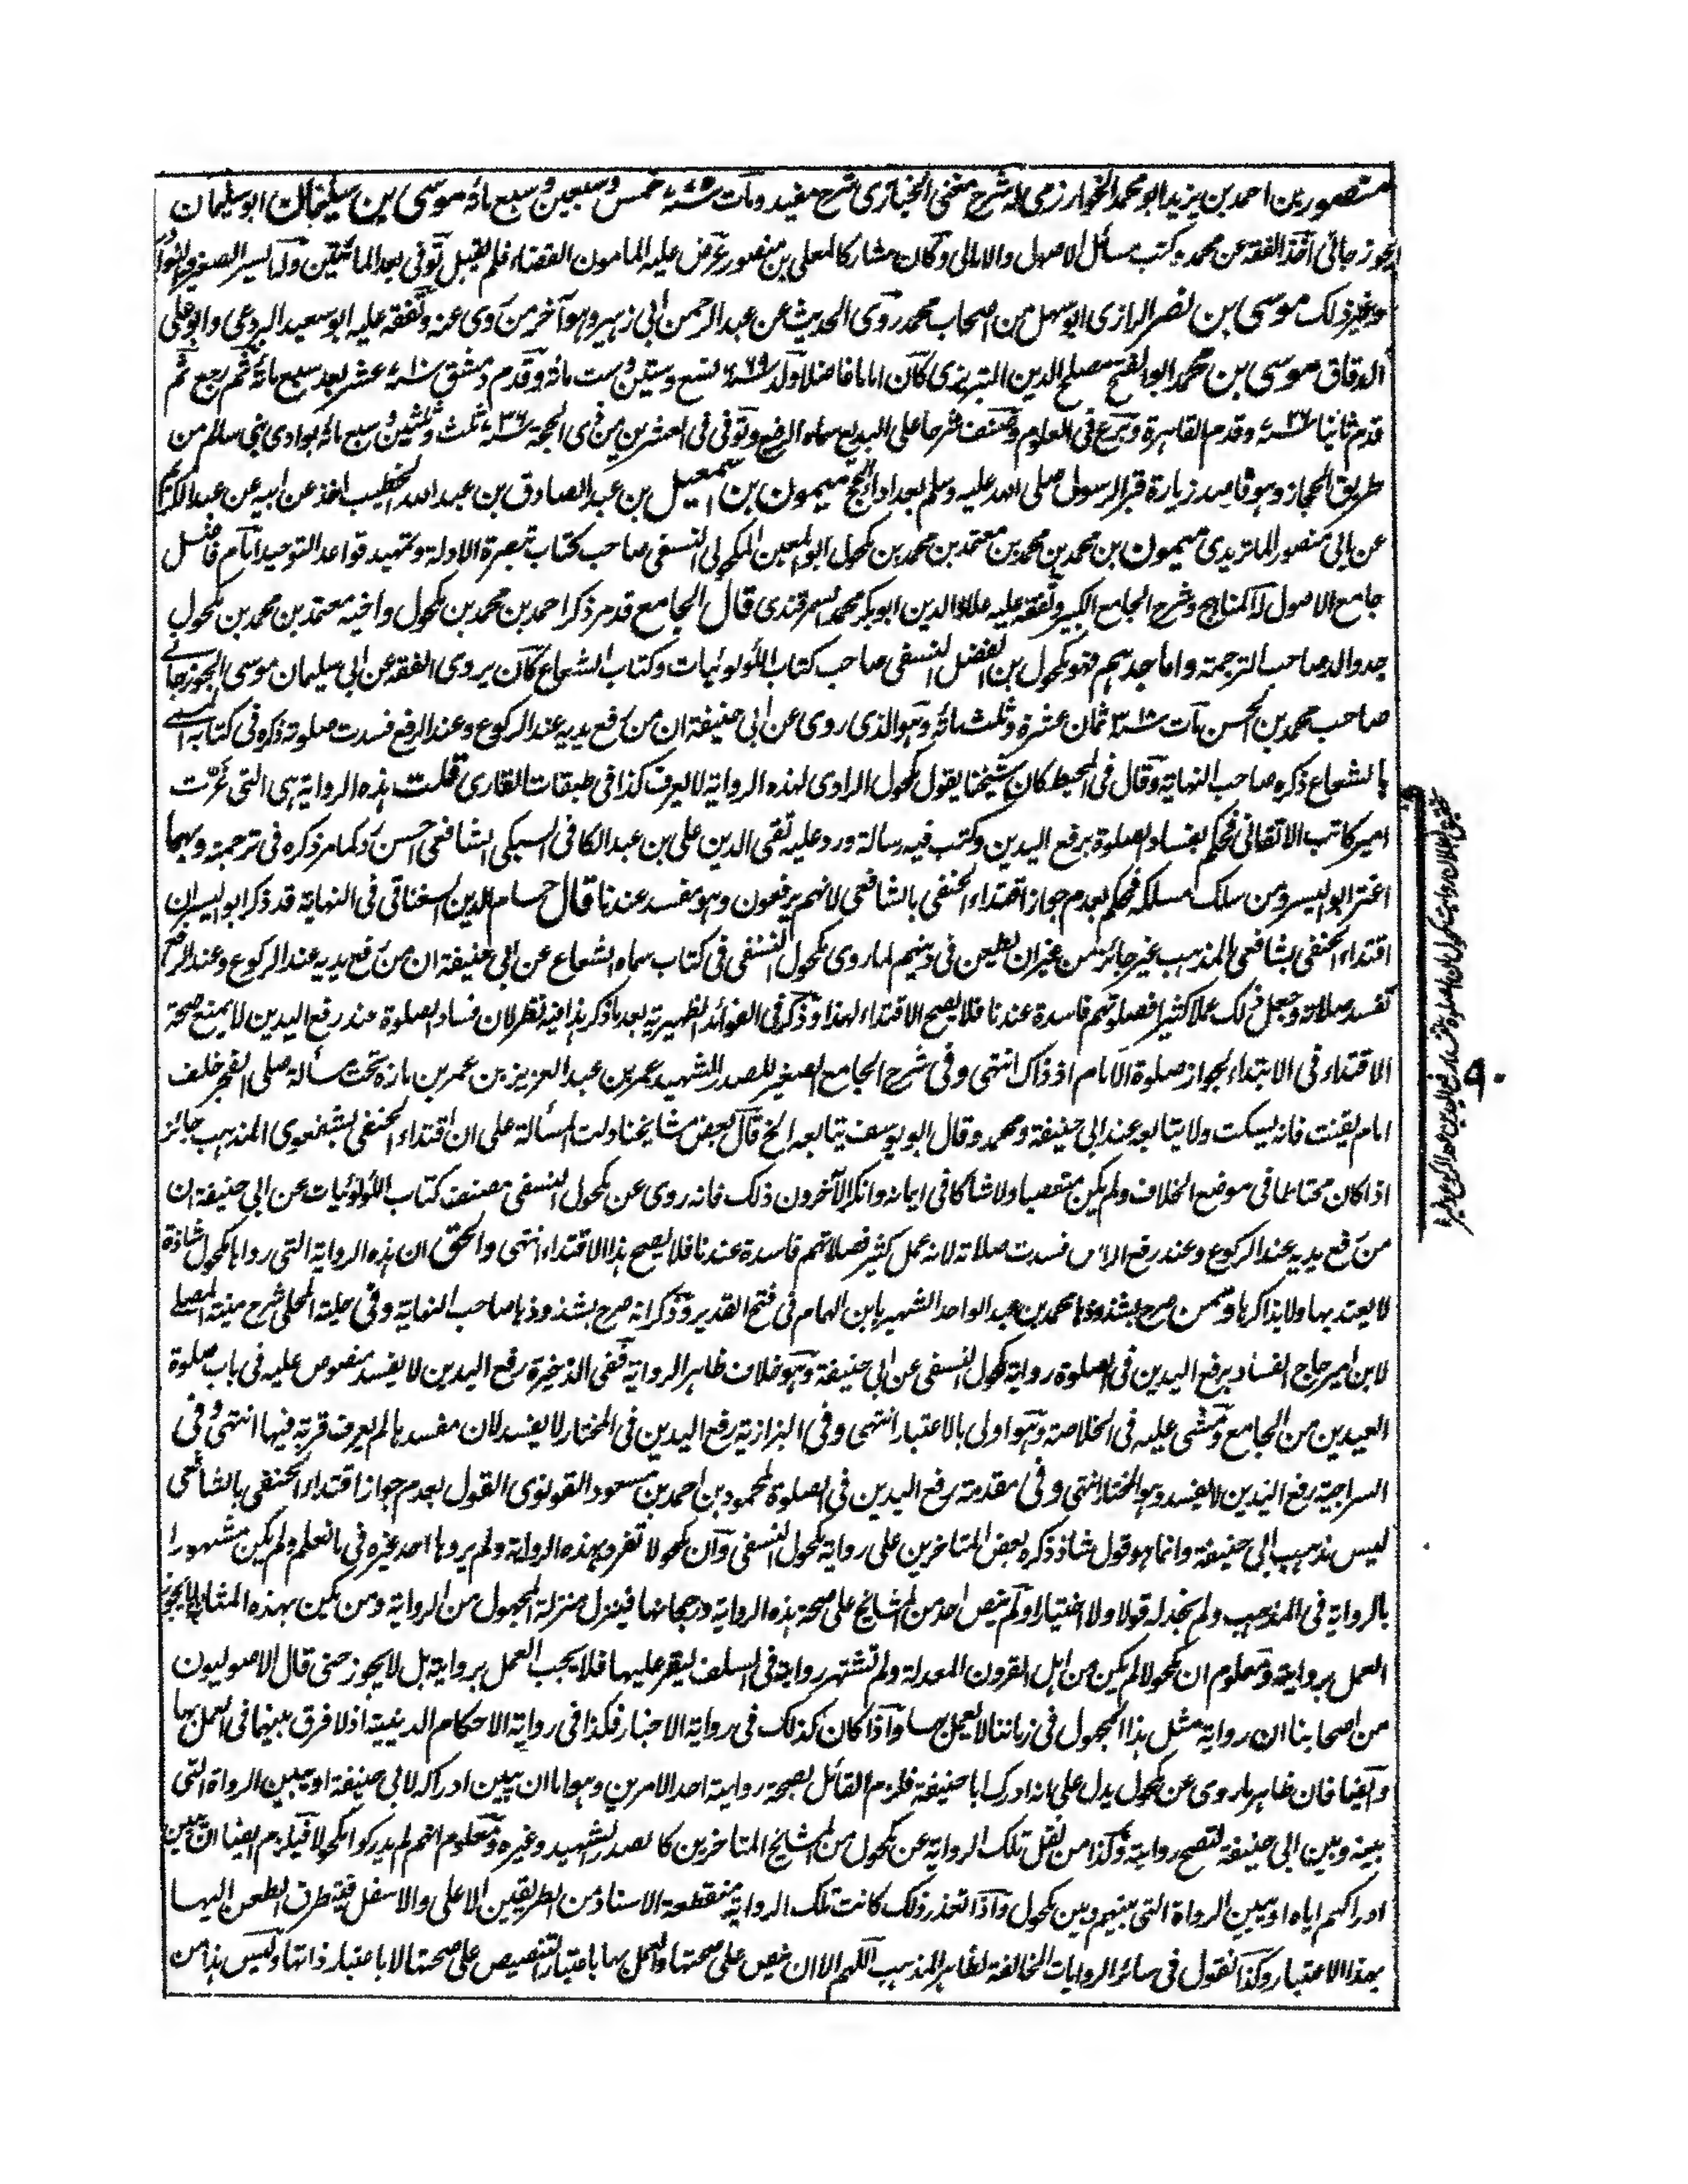 منصور بن احمد بن يزيد ابو محمد الخوارزمى له شرح مغنى الخبازى شرح مفيد ومات سنة ٧٧٥ خمس وسبعين وسبع مائة موسى بن سليمان ابو سليمان
الجوزجانى اخذ الفقه عن محمد وكتب مسائل الاصول والامالى وكان مشاركا لمعلى بن منصور عرض عليه المامون القضاء فلم يقبل توفى بعد المائتين وله السير الصغير والنوادر
وغير ذلك موسى بن نصر الرازى ابو سهل من اصحاب محمد روى الحديث عن عبد الرحمن ابى زهير وهو آخر من روى عنه وتفقه عليه ابو سعيد البردعى وابو على
الدقاق موسى بن محمد ابو الفتح مصلح الدين التبريزى كان اماما فاضلا ولد سنة ٦٦٩ تسع وستين وست مائة وقدم دمشق سنة ٧١٠ عشر بعد سبع مائة ثم رجع ثم
قدم ثانيا وقدم القاهرة وبرع فى العلوم وصنف شرحا على البديع سماه الرفيع وتوفى فى العشرين من ذى الحجة سنة ٧٣٦ ثلث وثلثين وسبع مائة بوادى بنى سالم من
طريق الحجاز وهو قاصد زيارة قبر الرسول صلى الله عليه وسلم بعد اداء الحج ميمون بن اسمعيل بن عبد الصادق بن عبد الله الخطيب اخذ عن ابيه عن عبد الكريم
عن ابى منصور الماتريدى ميمون بن محمد بن محمد بن معتمد بن محمد بن مكحول ابو المعين المكحولى النسفى صاحب كتاب تبصرة الادلة وتمهيد قواعد التوحيد امام فاضل
جامع الاصول له المناهج وشرح الجامع الكبير وتفقه عليه علاء الدين ابو بكر محمد السمرقندى قال الجامع قد مر ذكر احمد بن محمد بن مكحول واخيه معتمد بن محمد بن مكحول
جد والد صاحب الترجمة واما جدهم فهو مكحول بن الفضل النسفى صاحب كتاب اللؤلوئيات وكتاب الشعاع كان يروى الفقه عن ابى سليمان موسى الجوزجانى
صاحب محمد بن الحسن مات سنة ٣١٨ ثمان عشرة وثلث مائة وهو الذى روى عن ابى حنيفة ان من رفع يديه عند الركوع وعند الرفع فسدت صلوته ذكره فى كتابه المسمى
بالشعاع ذكره صاحب النهاية وقال فى المحيط كان شيخنا يقول مكحول الراوى لهذه الرواية لا يعرف كذا فى طبقات القارى قلت هذه الرواية هى التى غرت
امير كاتب الاتقانى فحكم بفساد الصلوة برفع اليدين وكتب فيه رسالة ورد عليه تقى الدين على بن عبد الكافى السبكى الشافعى احسن رد كما مر ذكره فى ترجمته وبها
اغتر ابو اليسر ومن سلك مسلكه فحكم بعدم جواز اقتداء الحنفى بالشافعى لانهم يرفعون وهو مفسد عندنا قال حسام الدين السغناقى فى النهاية قد ذكر ابو اليسر ان
اقتداء الحنفى بشافعى المذهب غير جائز من غير ان يطعن فى دينهم لما روى مكحول النسفى فى كتاب سماه الشعاع عن ابى حنيفة ان من رفع يديه عند الركوع وعند الرفع
تفسد صلاته وجعل ذلك عملا كثيرا فصلوتهم فاسدة عندنا فلا يصح الاقتداء لهذا وذكر فى الفوائد الظهيرية بعد ما ذكر هذا فيه نظر لان فساد الصلوة عند رفع اليدين لا يمنع صحة
الاقتداء فى الابتداء لجواز صلوة الامام اذ ذاك انتهى وفى شرح الجامع الصغير للصدر الشهيد عمر بن عبد العزيز بن عمر بن مازه تحت مسألة صلى الفجر خلف
امام يقنت فانه يسكت ولا يتابعه عند ابى حنيفة ومحمد وقال ابو يوسف يتابعه الخ قال بعض مشايخنا دلت المسألة على ان اقتداء الحنفى بشفعوى المذهب جائز
اذا كان محتاطا فى موضع الخلاف ولم يكن متعصبا ولا شاكا فى ايمانه وانكر الآخرون ذلك فانه روى عن مكحول النسفى مصنف كتاب اللؤلؤيات عن ابى حنيفة ان
من رفع يديه عند الركوع وعند رفع الراس فسدت صلاته لانه عمل كثير فصلاتهم فاسدة عندنا فلا يصح هذا الاقتداء انتهى والحق ان هذه الرواية التى رواها مكحول شاذة
لا يعتد بها ولا يذاكرها وممن صرح بشذوذها محمد بن عبد الواحد الشهير بابن الهمام فى فتح القدير وذكر انه صرح بشذوذها صاحب النهاية وفى حلية المحلى شرح منية المصلى
لابن امير حاج الفساد برفع اليدين فى الصلوة رواية مكحول النسفى عن ابى حنيفة وهو خلاف ظاهر الرواية ففى الذخيرة رفع اليدين لا يفسد منصوص عليه فى باب صلوة
العيدين من الجامع ومشى عليه فى الخلاصة وهو اولى بالاعتبار انتهى وفى البزازية رفع اليدين فى المختار لا يفسد لان مفسدها لم يعرف قربة فيها انتهى وفى
السراجية رفع اليدين لا يفسد وهو المختار انتهى وفى مقدمة رفع اليدين فى الصلوة لمحمود بن احمد بن مسعود القونوى القول بعدم جواز اقتداء الحنفى بالشافعى
ليس مذهب ابى حنيفة وانما هو قول شاذ ذكره بعض المتاخرين على رواية مكحول النسفى وان مكحولا تفرد بهذه الرواية ولم يروها احد غيره فى ما نعلم ولم يكن مشهورا
بالرواية فى المذهب ولم نجد له قولا ولا اختيارا ولم ينص احد من المشايخ على صحة هذه الرواية ورجحانها فينزل منزلة المجهول من الرواية ومن يكن بهذه المثابة لا يجوز
العمل بروايته ومعلوم ان مكحولا لم يكن من اهل القرون المعدلة ولم تشتهر روايته فى السلف ليقر عليها فلا يجب العمل بروايته بل لا يجوز حتى قال الاصوليون
من اصحابنا ان رواية مثل هذا المجهول فى زماننا لا يعمل بها واذا كان كذلك فى رواية الاخبار فكذا فى رواية الاحكام الدينية اذ لا فرق بينهما فى العمل بها
وايضا فان ظاهر ما روى عن مكحول يدل على انه ادرك ابا حنيفة فلزم القائل بصحة روايته احد الامرين وهو اما ان يبين ادراكه لابى حنيفة او يبين الرواة التى
بينه وبين ابى حنيفة لتصح روايته وكذا من نقل تلك الرواية عن مكحول من المشايخ المتاخرين كالصدر الشهيد وغيره ومعلوم انهم لم يدركوا مكحولا فيلزم ايضا ان يبين
ادراكهم اياه او يبين الرواة التى بينهم وبين مكحول واذا تعذر ذلك كانت تلك الرواية منقطعة الاسناد من الطريقين الاعلى والاسفل فيتطرق الطعن اليها
بهذا الاعتبار وكذا نقول فى سائر الروايات المخالفة لظاهر المذهب اللهم الا ان ينص على صحتها والعمل بها باعتبار التنصيص على صحتها لا باعتبار ذاتها وليس هذا من
٩٠